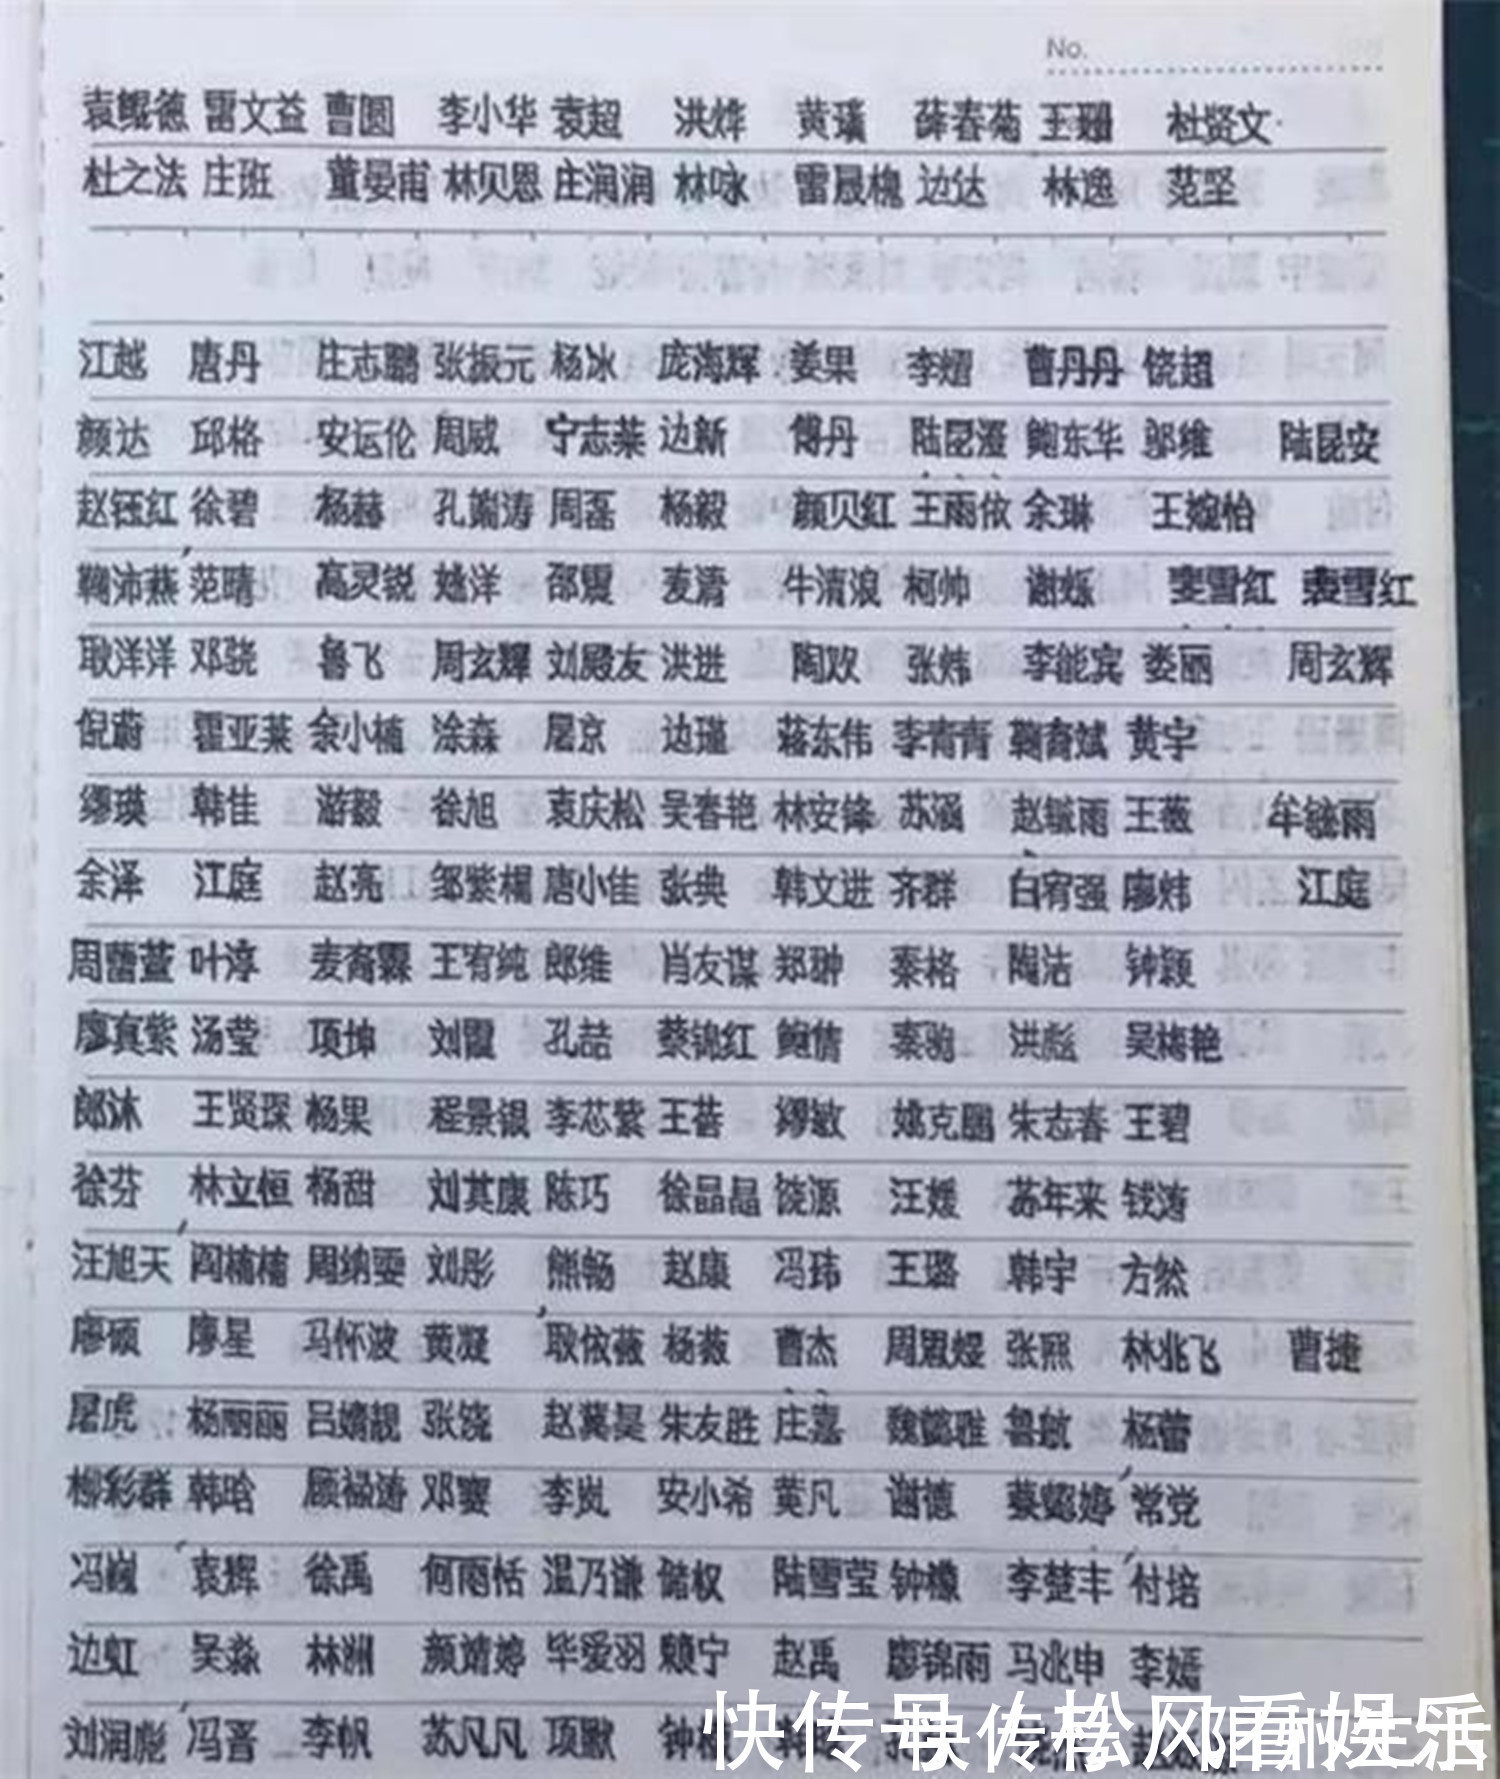 No.
袁鲲德 雷文益 曹圆 李小华 袁超 洪烨 黄瑾 薛春菊 王珊 杜贤文
杜之法 庄班 董晏甫 林贝恩 庄润润 林咏 雷晟槐 边达 林逸 范坚
江越 唐丹 庄志鹏 张振元 杨冰 庞海辉 姜果 李熠 曹丹丹 饶超
颜达 邱格 安运伦 周威 宁志莱 边新 傅丹 陆昆澄 鲍东华 邬维 陆昆安
赵钰红 徐碧 杨赫 孔端涛 周磊 杨毅 颜贝红 王雨依 余琳 王婉怡
鞠沛燕 范晴 高灵锐 姚洋 邵震 麦清 牛清浪 柯帅 谢烁 斐雪红 裴雪红
耿洋洋 邓骁 鲁飞 周玄辉 刘殿友 洪进 陶欢 张炜 李能宾 娄丽 周玄辉
倪蔚 霍亚莱 余小楠 涂森 屠京 边瑾 蒋东伟 李青青 鞠育斌 黄宇
缪瑛 韩佳 游毅 徐旭 袁庆松 吴春艳 林安锋 苏涵 赵毓雨 王薇 牟毓雨
余泽 江庭 赵亮 邹紫楣 唐小佳 张典 韩文进 齐群 白宥强 廖炜 江庭
周蕾萱 叶淳 麦裔霖 王宥纯 郎维 肖友谋 郑翀 秦格 陶洁 钟颖
廖真紫 汤莹 项坤 刘霞 孔喆 蔡锦红 鲍倩 秦驹 洪彪 吴梅艳
郎沐 王贤琛 杨果 程景银 李芯紫 王菩 缪敏 姚克鹏 朱志春 王碧
徐芬 林立恒 杨甜 刘其康 陈巧 徐晶晶 饶源 汪媛 苏年来 钱涛
汪旭天 阎楠楠 周纳雯 刘彤 熊畅 赵康 冯玮 王璐 韩宇 方然
廖硕 廖星 马怀波 黄凝 耿依薇 杨薇 曹杰 周思煜 张熙 林兆飞 曹捷
屠虎 杨丽丽 吕婧靓 张饶 赵冀昊 朱友胜 庄嘉 魏懿雅 鲁敏 杨蕾
柳彩群 韩晗 顾禄涛 邓赛 李岚 安小希 黄凡 谢德 蔡懿婷 常党
冯巍 袁辉 徐禹 何雨恬 温乃谦 储权 陆雪莹 钟檬 李楚丰 付培
边虹 吴淼 林洲 颜靖婷 毕爱羽 赖宁 赵禹 廖锦雨 马兆申 李嫣
刘润彪 冯晋 李帆 苏凡凡 项默
快传号 松风看娱乐